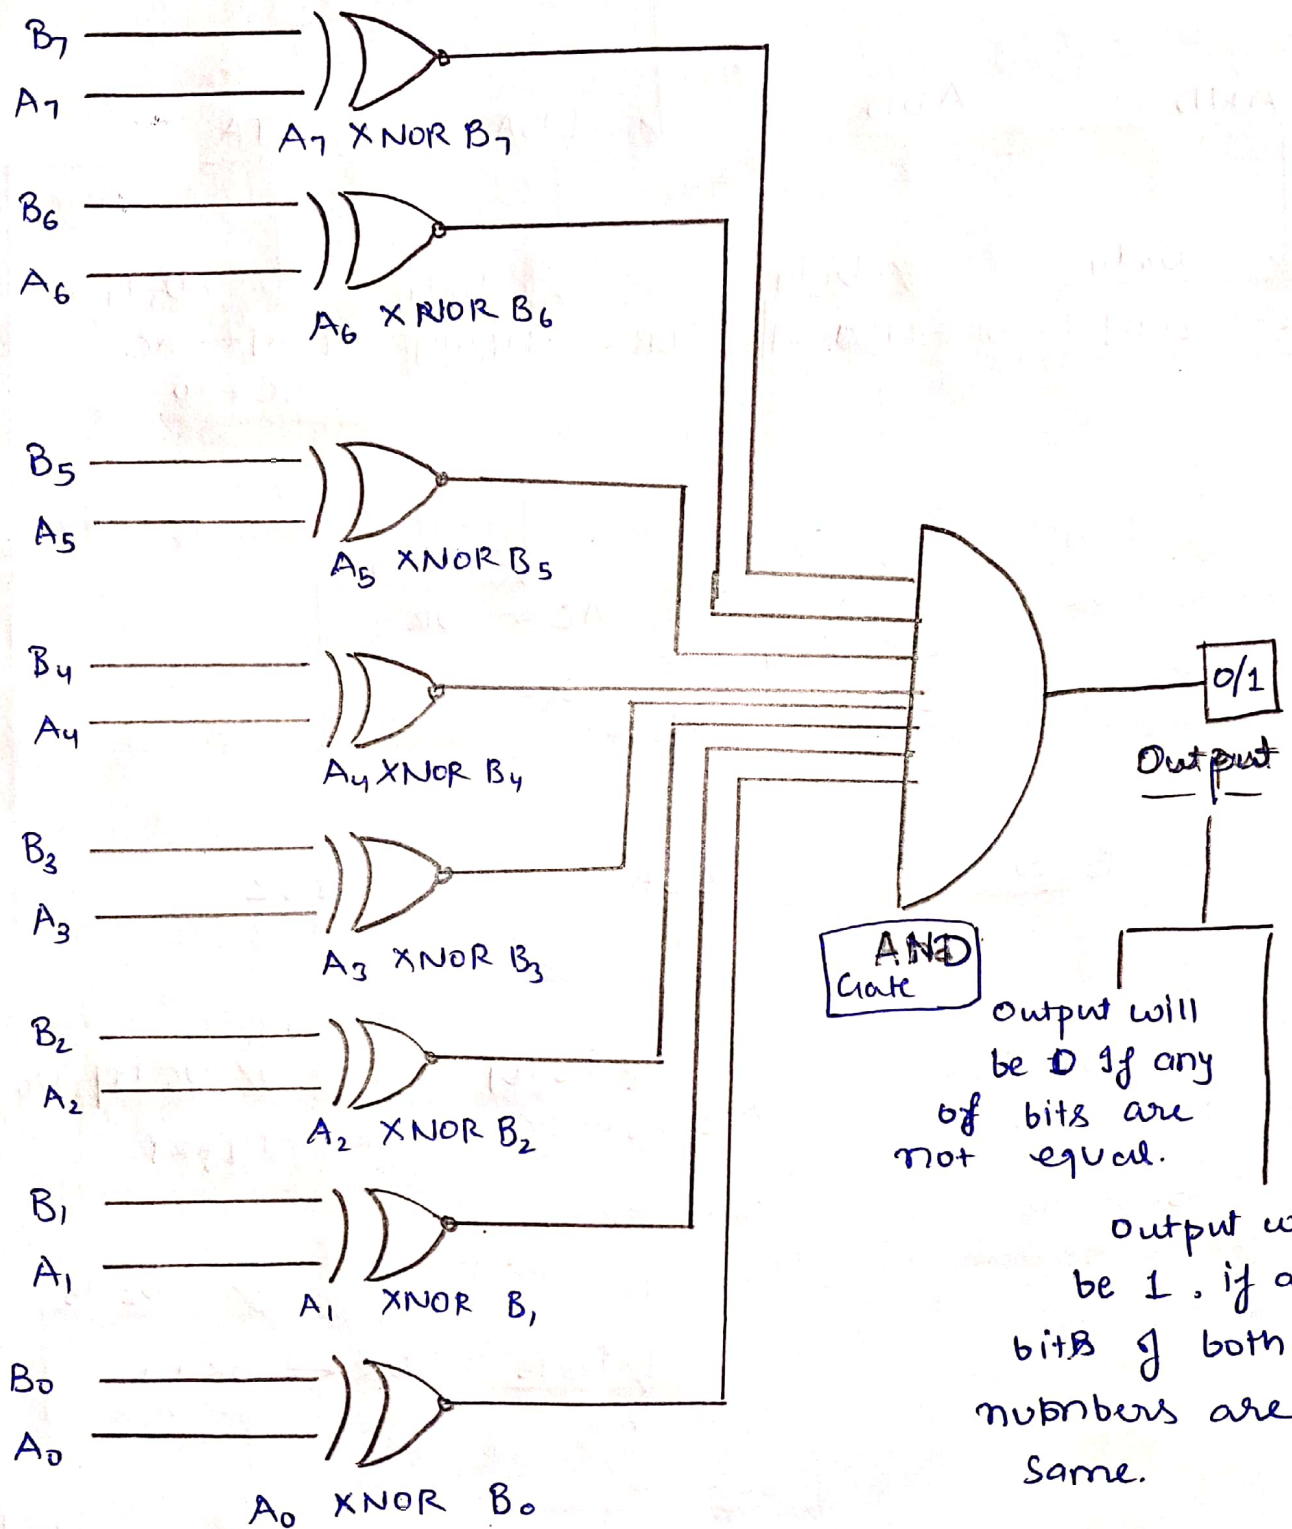 B7
A7
A7 XNOR B7
B6
A6
A6 XNOR B6
B5
A5
A5 XNOR B5
B4
A4
A4 XNOR B4
B3
A3
A3 XNOR B3
B2
A2
A2 XNOR B2
B1
A1
A1 XNOR B1
B0
A0
A0 XNOR B0
AND
Gate
0/1
Output
Output will
be 0 If any
of bits are
not equal.
Output
be 1, if
bits of both
numbers are
Same.